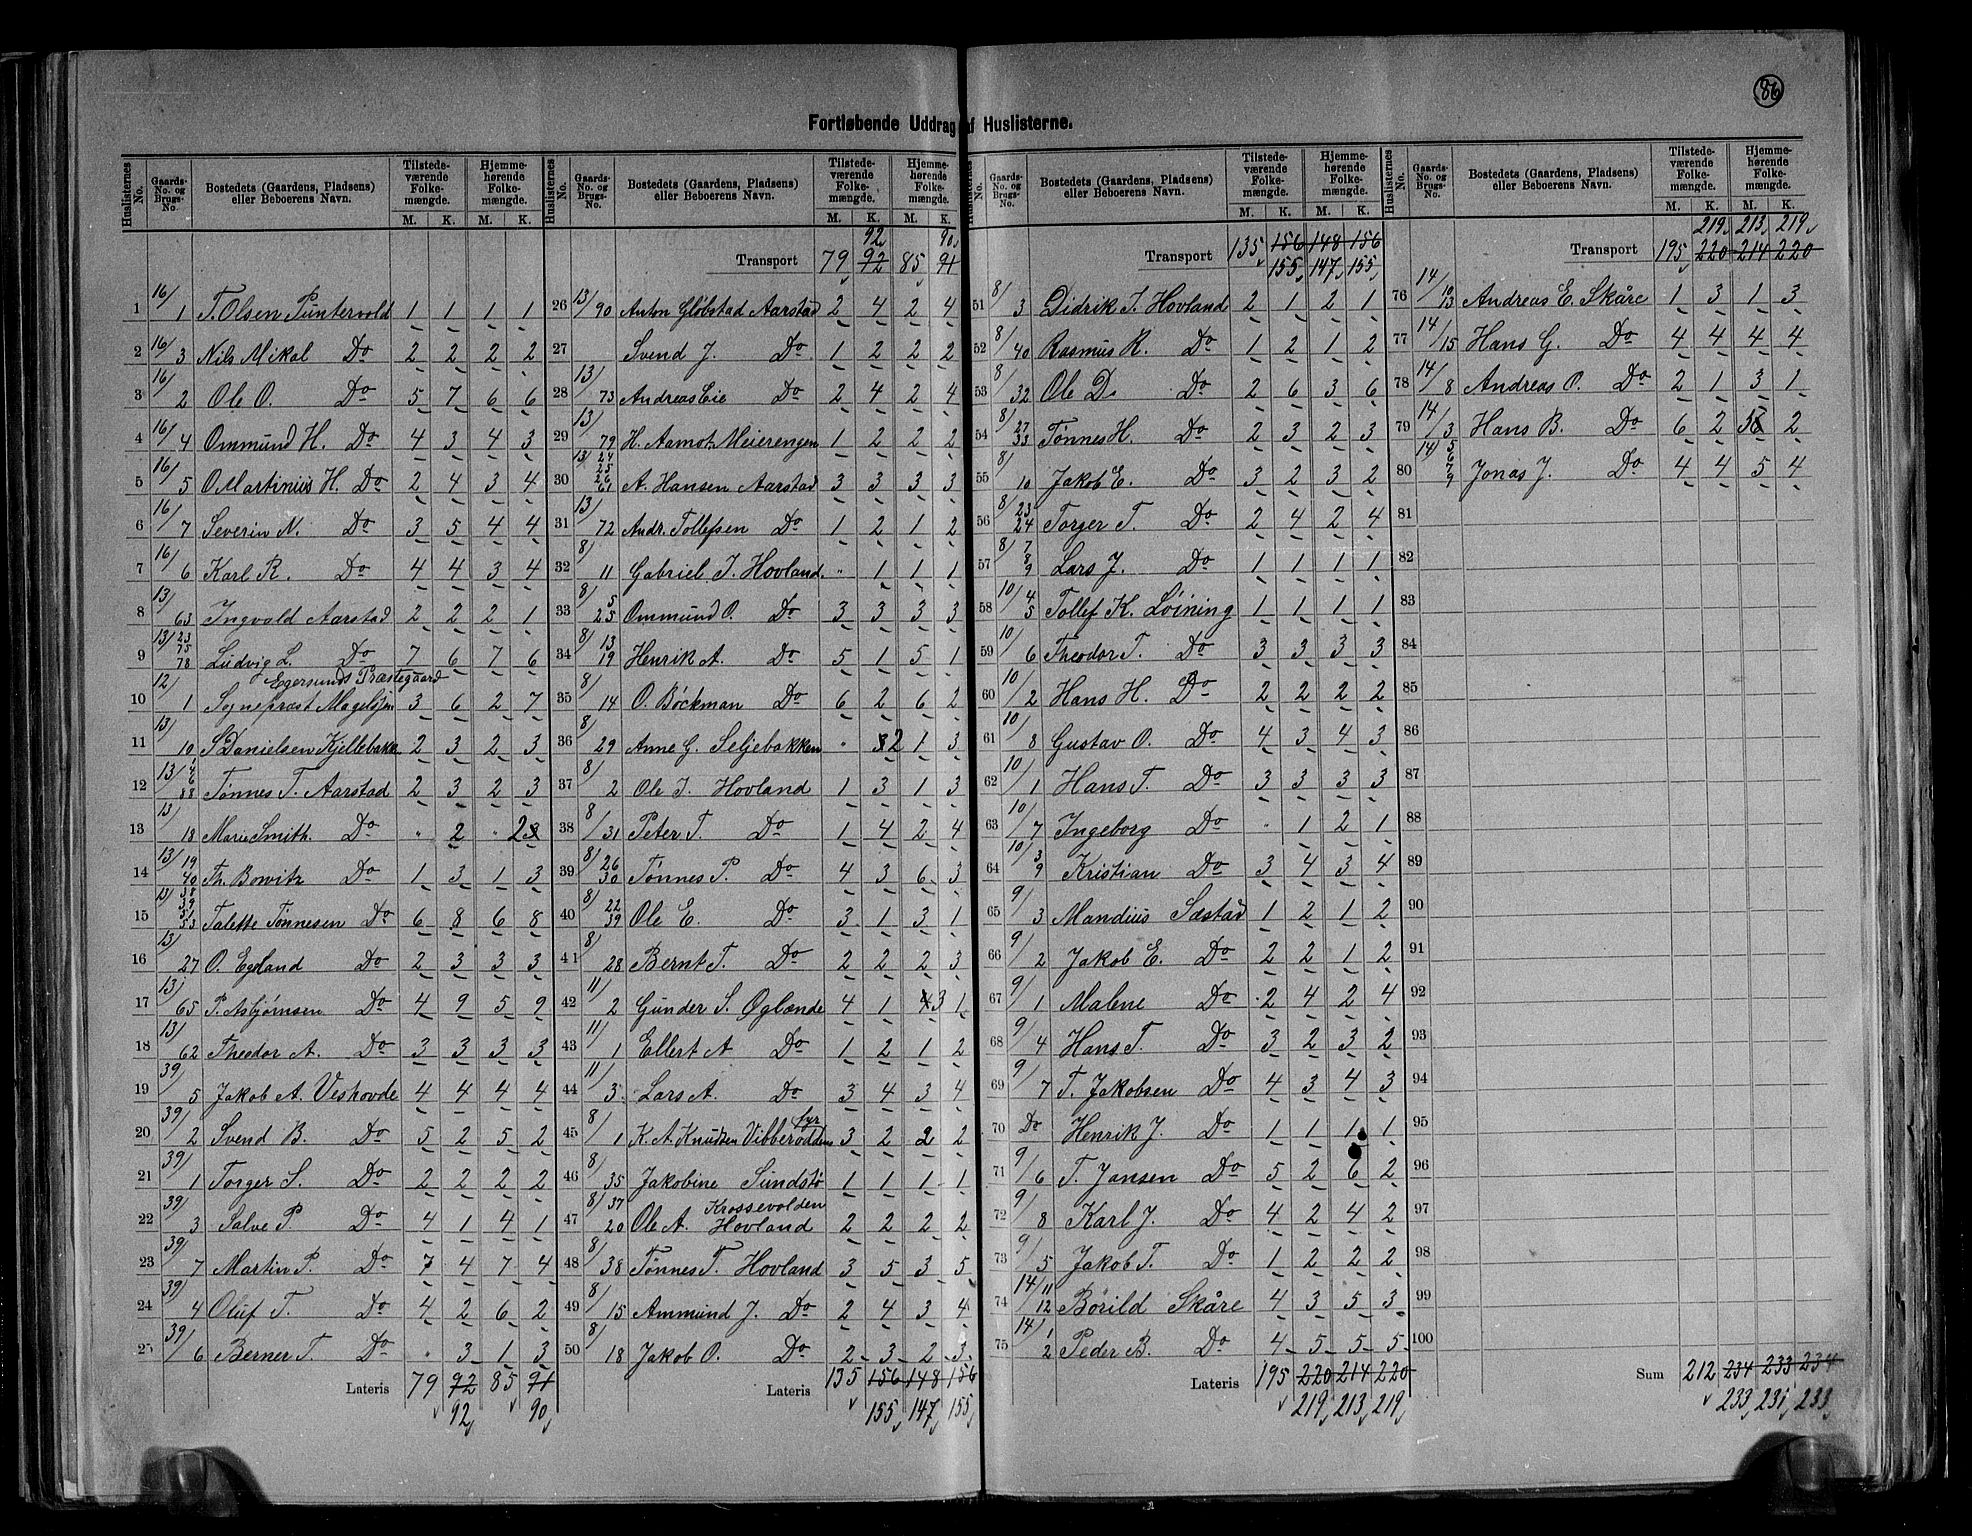 86
Fortløbende Uddrag af Huslisterne.
Huslisternes No. Gaards-No. og Brugs-No. Bostedets (Gaardens, Pladsens) eller Beboerens Navn. Tilstedeværende Folkemængde. M. K. Hjemmehørende Folkemængde. M. K.
1 16/1 T. Olsen Puntervold 1 1 1 1
2 16/3 Nils Mikal Do 2 2 2 2
3 16/2 Ole O. Do 5 7 6 6
4 16/4 Ommund H. Do 4 3 4 3
5 16/5 O Martinius H. Do 2 4 3 4
6 16/7 Severin N. Do 3 5 4 4
7 16/6 Karl R. Do 4 4 3 4
8 13/63 Ingvald Aarstad 2 2 2 1
9 13/23 75 78 Ludvig L. Do 7 6 7 6
Egersunds Præstegaard
10 12/1 Sognepræst Magelsjen 3 6 2 7
11 13/10 S Danielsen Kjellebakk 2 3 2 3
12 13/ 88 Tønnes T. Aarstad 2 3 2 3
13 13/18 Marie Smith. Do " 2 " 2
14 13/19 40 Th. Bowitz Do 1 3 1 3
15 13/38 39 53 Talette Tønnesen Do 6 8 6 8
16 13/27 O. Egeland Do 2 3 3 3
17 13/65 P. Asbjørnsen Do 4 9 5 9
18 13/62 Theodor A. Do 3 3 3 3
19 39/5 Jakob A. Veshovde 4 4 4 4
20 39/2 Svend B. Do 5 2 5 2
21 39/1 Torger S. Do 2 2 2 2
22 39/3 Salve P. Do 4 1 4 1
23 39/7 Martin P. Do 7 4 7 4
24 39/4 Oluf T. Do 4 2 6 2
25 39/6 Berner T. Do " 3 1 3
Lateris 79 92 85 91
92 90
Huslisternes No. Gaards-No. og Brugs-No. Bostedets (Gaardens, Pladsens) eller Beboerens Navn. Tilstedeværende Folkemængde. M. K. Hjemmehørende Folkemængde. M. K.
92 90
Transport 79 92 85 91
26 13/90 Anton Gløbstad Aarstad 2 4 2 4
27 Svend J. Do 1 2 2 2
28 13/73 Andreas Eie Do 2 4 2 4
29 13/79 H. Aamot, Meierengen 1 2 2 2
30 13/24 25 26 61 A. Hansen Aarstad 3 3 3 3
31 13/72 Andr. Tollefsen Do 1 2 1 2
32 8/11 Gabriel T. Hovland. " 1 1 1
33 8/5 25 Ommund O. Do 3 3 3 3
34 8/13 19 Henrik A. Do 5 1 5 1
35 8/14 O. Bøckman Do 6 2 6 2
36 8/29 Anne G. Seljebakken " 2 1 3
37 8/2 Ole J. Hovland 1 3 1 3
38 8/31 Peter T. Do 1 4 2 4
39 8/26 30 Tønnes P. Do 4 3 6 3
40 8/22 39 Ole E. Do 3 1 3 1
41 8/28 Bernt T. Do 2 2 2 3
42 11/2 Gunder S. Øglænde 4 1 3 1
43 11/1 Ellert A Do 1 2 1 2
44 11/3 Lars A. Do 3 4 3 4
fyr
45 8/1 K. A. Knudsen Vibberodden 3 2 2 2
46 8/35 Jakobine Sundstø 1 1 1 1
Krossevolden
47 8/37 20 Ole A. Hovland 2 2 2 2
48 8/38 Tønnes T. Hovland 3 5 3 5
49 8/15 Ammund J. Do 2 4 3 4
50 8/18 Jakob O. Do 2 3 2 3
Lateris 135 156 148 156
155 147 155
Huslisternes No. Gaards-No. og Brugs-No. Bostedets (Gaardens, Pladsens) eller Beboerens Navn. Tilstedeværende Folkemængde. M. K. Hjemmehørende Folkemængde. M. K.
Transport 135 156 148 156
155 147 155
51 8/3 Didrik T. Hovland 2 1 2 1
52 8/40 Rasmus R. Do 1 2 1 2
53 8/32 Ole D. Do 2 6 3 6
54 8/27 33 Tønnes H. Do 2 3 2 3
55 8/10 Jakob E. Do 3 2 3 2
56 8/23 24 Torger T. Do 2 4 2 4
57 8/7 8 9 Lars J. Do 1 1 1 1
58 10/4 5 Tollef K. Løining 1 1 1 1
59 10/6 Theodor T. Do 3 3 3 3
60 10/2 Hans H. Do 2 2 2 2
61 10/8 Gustav O. Do 4 3 4 3
62 10/1 Hans T. Do 3 3 3 3
63 10/7 Ingeborg Do " 1 2 1
64 10/3 9 Kristian Do 3 4 3 4
65 9/3 Mandius Sæstad 1 2 1 2
66 9/2 Jakob E. Do 2 2 1 2
67 9/1 Malene Do 2 4 2 4
68 9/4 Hans T. Do 3 2 3 2
69 9/7 T. Jakobsen Do 4 3 4 3
70 Do Henrik J. Do 1 1 1 1
71 9/6 T. Jansen Do 5 2 6 2
72 9/8 Karl J. Do 4 2 4 2
73 9/5 Jakob T. Do 1 2 2 2
74 14/11 12 Børild Skåre 4 3 5 3
75 14/1 2 Peder B. Do 4 5 5 5
Lateris 195 220 214 220
219 213 219
Huslisternes No. Gaards-No. og Brugs-No. Bostedets (Gaardens, Pladsens) eller Beboerens Navn. Tilstedeværende Folkemængde. M. K. Hjemmehørende Folkemængde. M. K.
219 213 219
Transport 195 220 214 220
76 14/10 13 Andreas E. Skåre 1 3 1 3
77 14/15 Hans G. Do 4 4 4 4
78 14/8 Andreas O. Do 2 1 3 1
79 14/3 Hans B. Do 6 2 5 2
80 14/5 6 7 9 Jonas J. Do 4 4 5 4
81
82
83
84
85
86
87
88
89
90
91
92
93
94
95
96
97
98
99
100
Sum 212 234 233 234
233 231 233